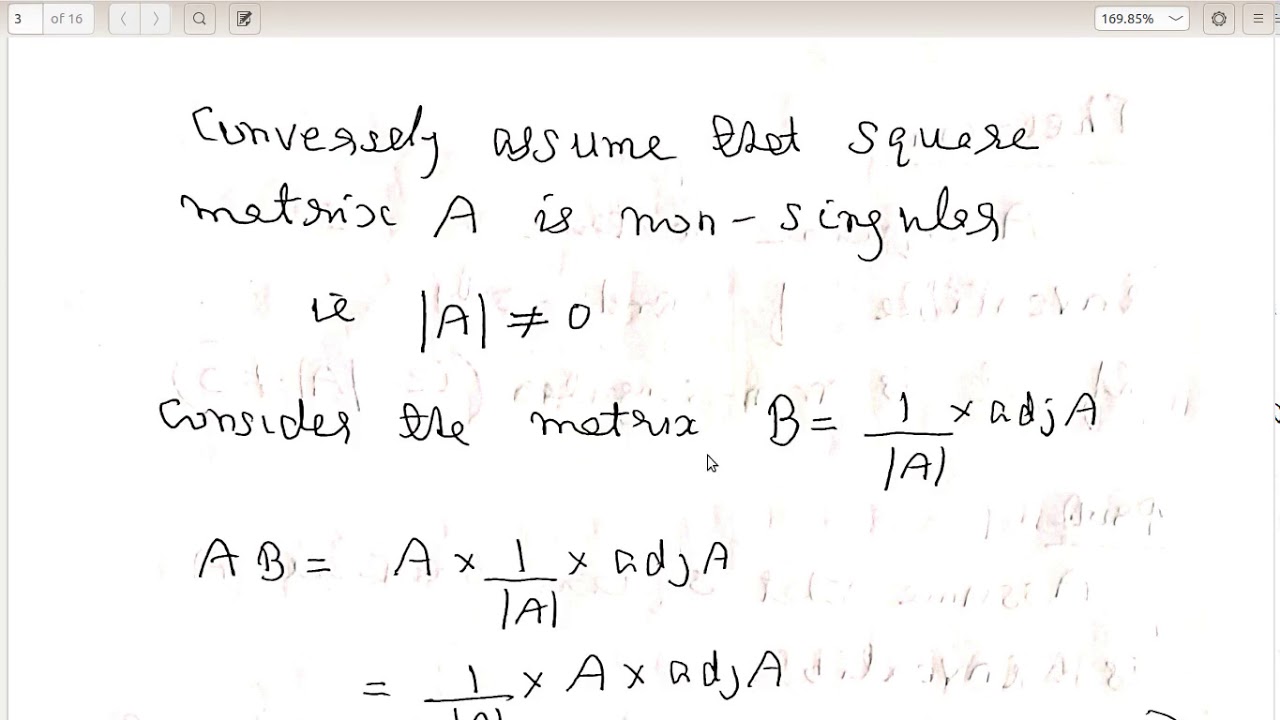 3 of 16 169.85%
Conversely assume that square
matrix A is non-singular
ie |A| ≠ 0
Consider the matrix B = 1/|A| × adj A
AB = A × 1/|A| × adj A
= 1/|A| × A × adj A